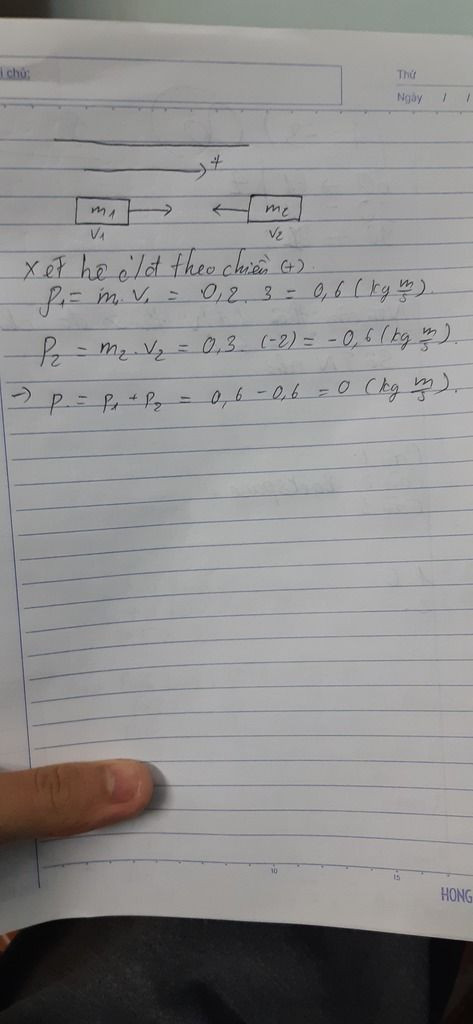 i chú:
Thứ
Ngày / /
+
m1 m2
v1 v2
Xét hệ
theo chiều (+).
P1 = m. v1 = 0,2. 3 = 0,6 (kg m/s).
P2 = m2. v2 = 0,3. (-2) = -0,6 (kg m/s).
→ P. = P1 + P2 = 0,6 - 0,6 = 0 (kg m/s).
10 15
HONG